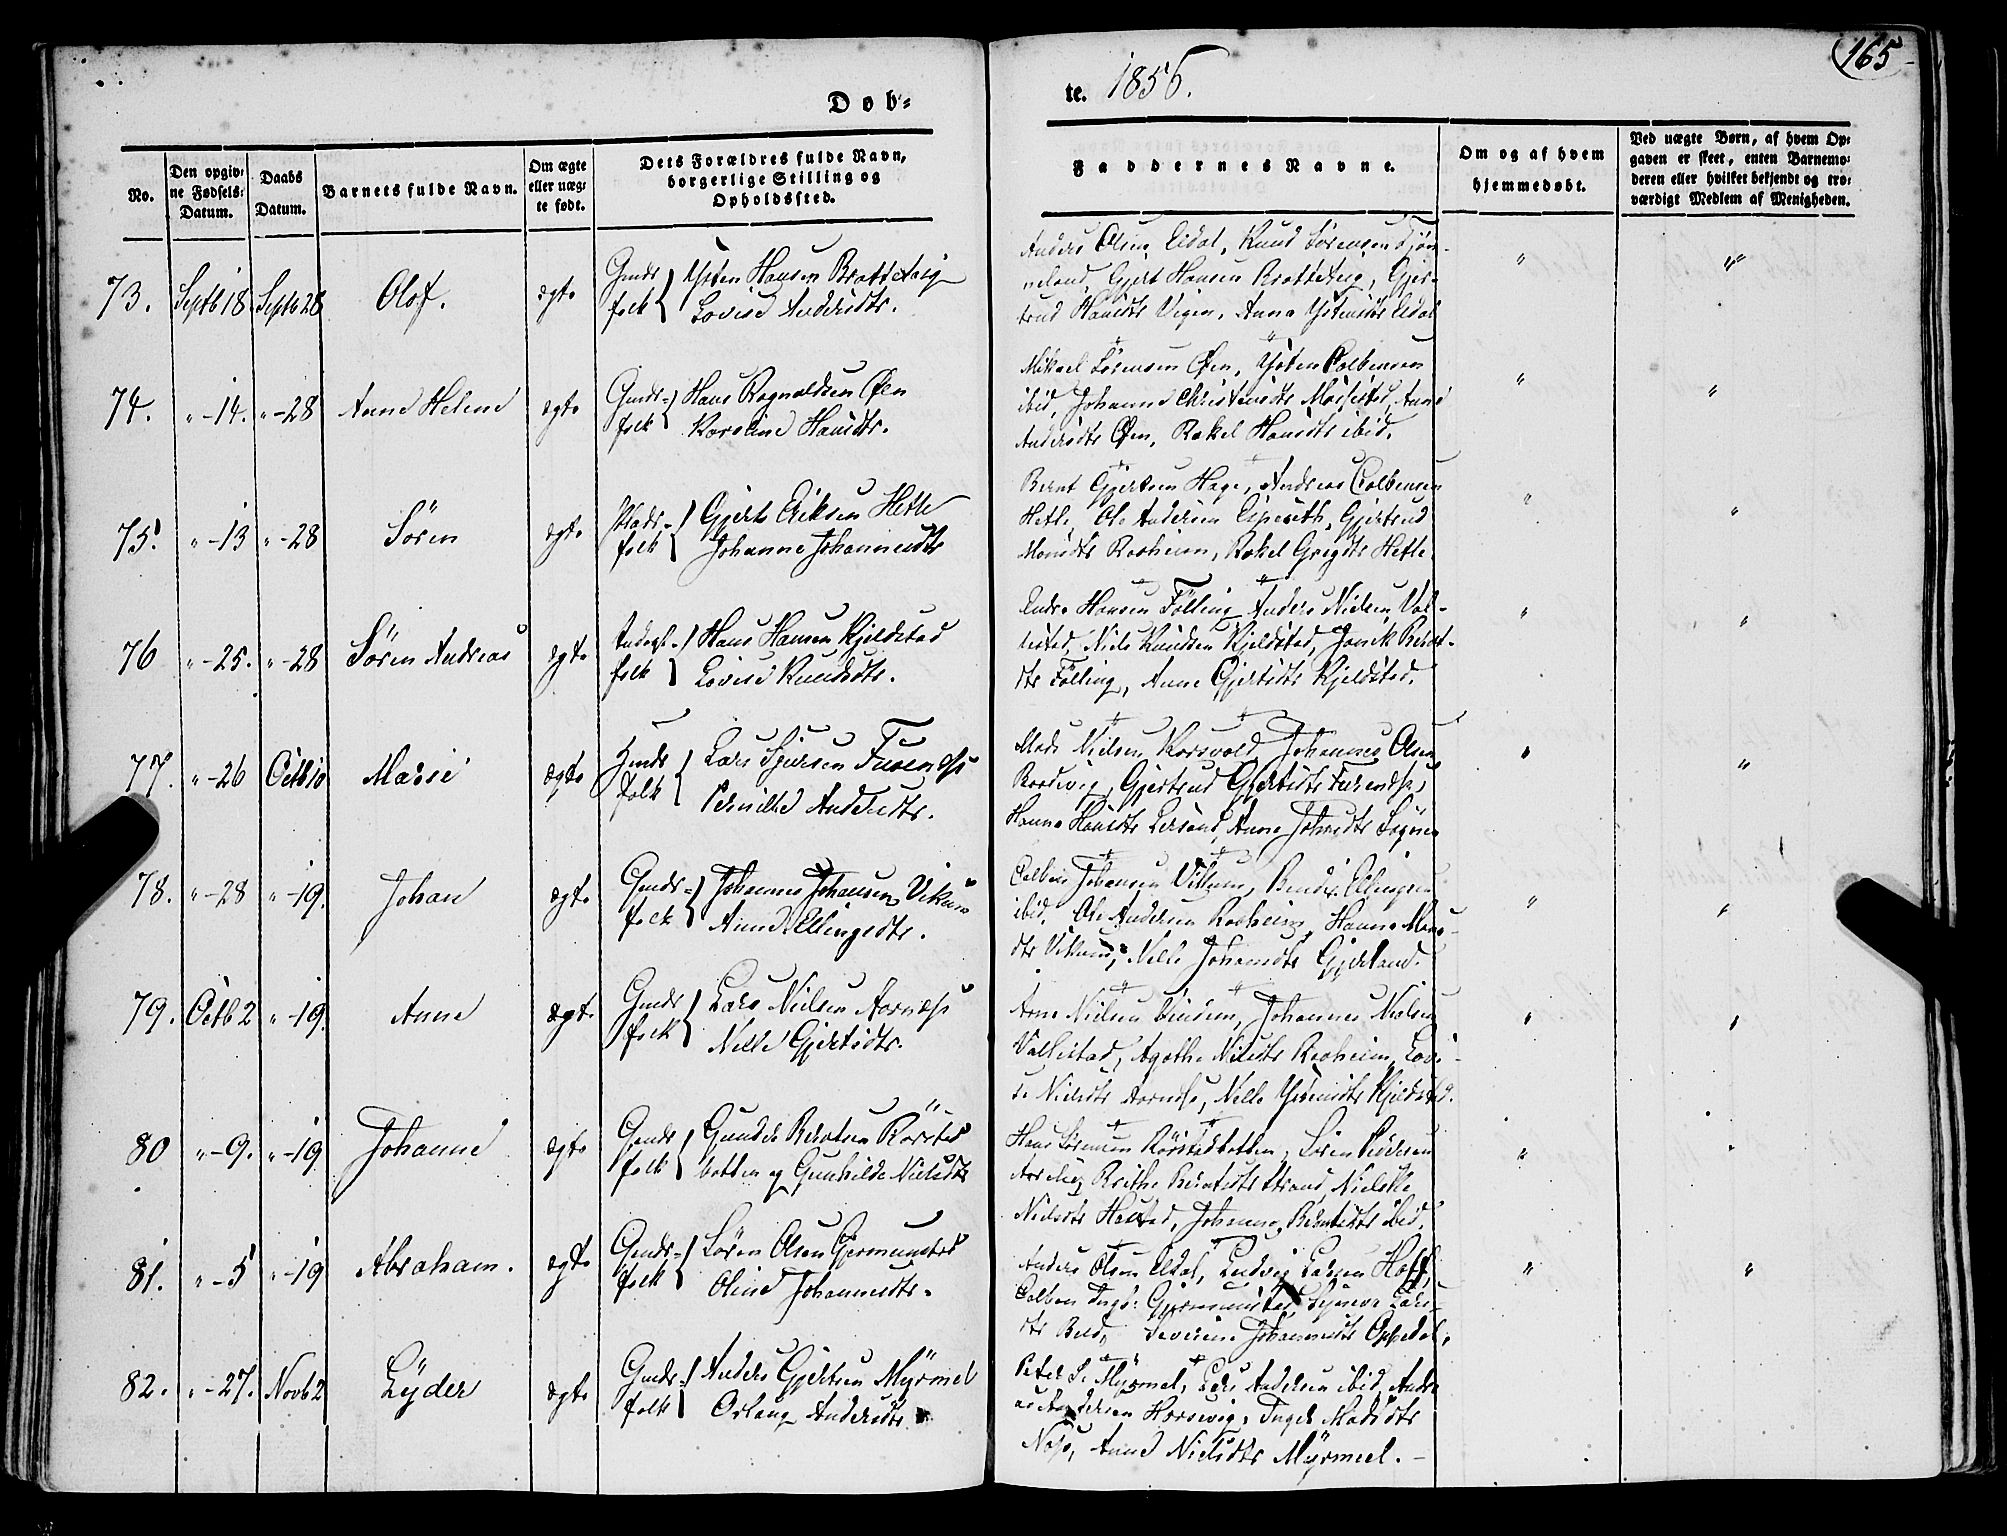 165
Døb-
te. 1856.
No.
Den opgiv-
ne Fødsels-
Datum.
Daabs
Datum.
Barnets fulde Navn.
Om ægte
eller uæg-
te født.
Dets Forældres fulde Navn,
borgerlige Stilling og
Opholdssted.
Faddernes Navne.
Om og af hvem
hjemmedøbt.
Ved uægte Børn, af hvem Op-
gaven er skeet, enten Barnemo-
deren eller hvilket bekjendt og tro-
værdigt Medlem af Menigheden.
73. Septb 18 Septb 28 Olof. ægte
Gmds folk { Ysten Hansen Bratteteig
Lovise Andersdtr.
Anders Olsen Eidal, Knud Sørensen
Gjert Hansen Bratteteig, Gjer-
trud Hansdtr Vigen, Anna Ystensdtr Eidal
74. " -14. " -28 Anne Helene ægte
Gmds- folk { Hans Ragnaldsen Øen
Karoline Hansdtr.
Mikael Sørensen Øen, Ysten Colbensen
ibid, Johanne Christensdtr Anne
Andersdtr Øen, Rakel Hansdtr ibid.
75. " -13 " -28 Sören ægte
Plads- folk { Gjert Eriksen Hetle
Johanne Johannesdtr
Bernt Gjertsen Hage, Andreas Colbensen
Hetle, Ole Andersen Espeseth, Gjertrud
Monsdtr Rooheim, Rakel Gregsdtr Hetle.
76 " -25. " -28 Sören Andreas ægte
folk { Hans Hansen Kjeldstad
Lovise Knudsdtr.
Endre Hansen Fölling, Anders Nielsen Val-
lestad, Niels Knudsen Kjeldstad, Bernt-
dtr Fölling, Anne Gjertsdtr Kjeldstad.
77. " -26 Octb 10 ægte
Gmds folk { Lars Sjursen
Pernille Andersdtr.
Mads Nielsen Korsvold, Johannes Olsen
Gjertrud Gjertsdtr
Hanna Hansdtr Anne Johnsdtr
78. " -28 " -19. Johan ægte
Gmds- folk { Johannes Johansen Vikum
Anne Ellingsdtr.
Colben Johansen Vikum, Ellingsen
ibid, Ole Andersen Rooheim, Hanna Mons-
dtr Vikum, Nille Johansdtr Gjerland.
79. Octb 2 " -19. Anne ægte
Gmds folk { Lars Nielsen Aarnæs
Nille Gjertsdtr.
Arne Nielsen Johannes Nielsen
Vallestad, Agathe Nilsdtr Rooheim, Lovi-
se Nielsdtr Aarnæs, Nille Ystensdtr Kjeldstad.
80 " -9. " -19. Johanne ægte
Gmds folk { Gunder Berntsen Rörstad
botten og Gunhilde Nielsdtr
Hans Sörensen Rörstadbotten, Sören Pedersen
Brithe Berntsdtr Strand,
Nielsdtr Johanne Berntsdtr ibid.
81. " -5 " -19 Abraham. ægte
Gmds- folk { Sören Olsen Germunstad
Oline Johannesdtr.
Anders Olsen Eidal, Ludvig Larsen Hoff,
Colben Ingb: Gjermunstad, Synneva Lars-
dtr Severine Johannesdtr Oppedal.
82. " -27. Novb 2 Lyder ægte
Gmds- folk { Anders Gjertsen Myrmel
Orlaug Andersdtr
Peter S. Myrmel, Lars Andersen ibid, Andre-
as Andersen Horsevig, Inger Madsdtr
Anne Nielsdtr Myrmeel. -